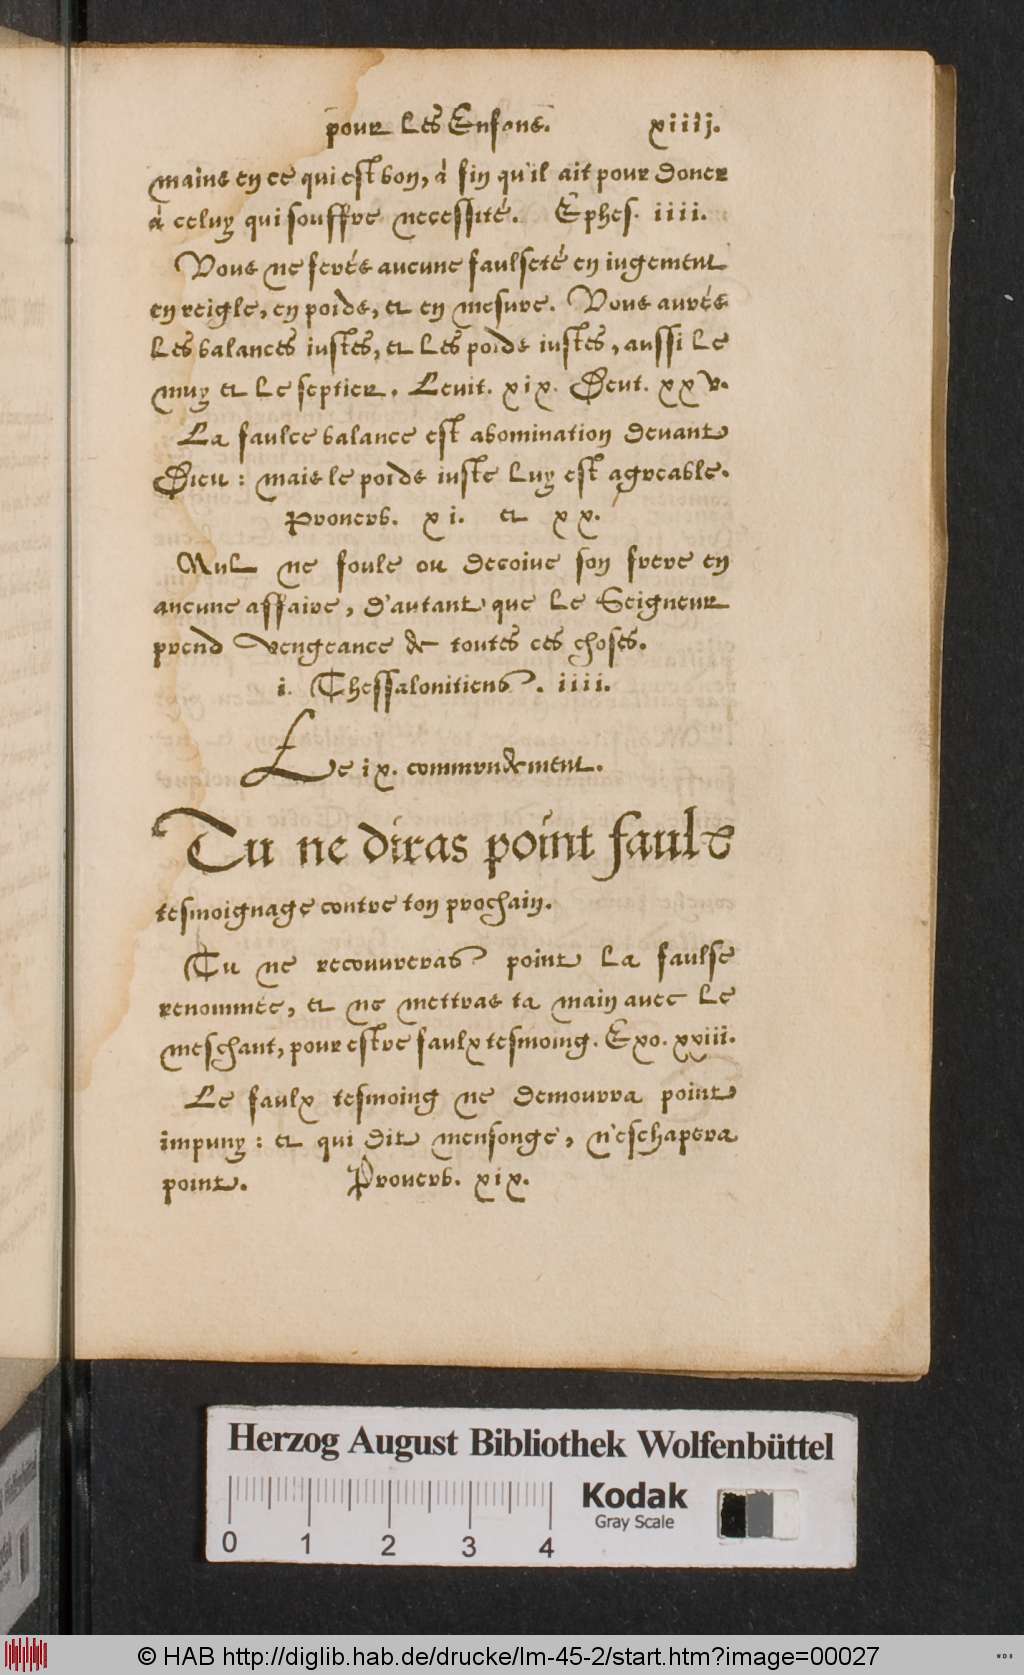 pour les Enfans. xiiij.
mains en ce qui est bon, à fin qu'il ait pour doner
à celuy qui souffre necessité. Ephes. iiii.
Vous ne ferés aucune faulseté en iugement
en reigle, en poids, et en mesure. Vous aurés
les balances iustes, et les poids iustes, aussi le
muy et le septier. Levit. xix. Deut. xxv.
La faulce balance est abomination devant
Dieu : mais le poids iuste luy est agreable.
Proverb. xi. et xx.
Nul ne foule ou decoive son frere en
aucune affaire, d'autant que le Seigneur
prend vengeance de toutes ces choses.
i. Thessalonitiens. iiii.
Le ix. commandement.
Tu ne diras point faulx
tesmoignage contre ton prochain.
Tu ne recouvreras point la faulse
renommée, et ne mettras ta main avec le
meschant, pour estre faulx tesmoing. Exo. xxiii.
Le faulx tesmoing ne demourra point
impuny : et qui dit mensonge, n'eschapera
point. Proverb. xix.
Herzog August Bibliothek Wolfenbüttel
Kodak
Gray Scale
0 1 2 3 4
© HAB http://diglib.hab.de/drucke/lm-45-2/start.htm?image=00027